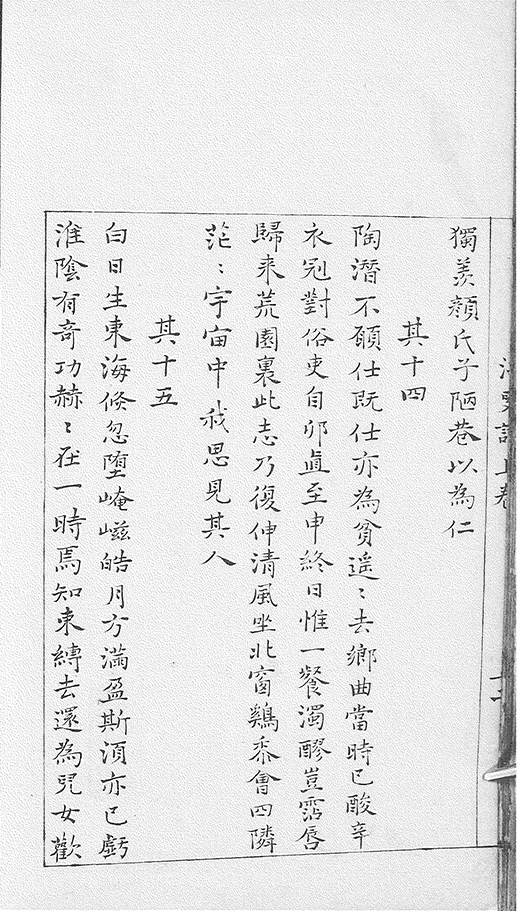 獨羨顔氏子陋巷以為仁
其十四
陶潛不願仕既仕亦為貧遥〻去鄉曲當時已酸辛
衣冠對俗吏自卯直至申終日惟一餐濁醪豈霑唇
歸来荒園裏此志乃復伸清風坐北窗鷄黍會四隣
茫〻宇宙中我思見其人
其十五
白日生東海倏忽墮崦嵫皓月方滿盈斯須亦已虧
淮陰有奇功赫〻在一時焉知束縛去還為兒女歡